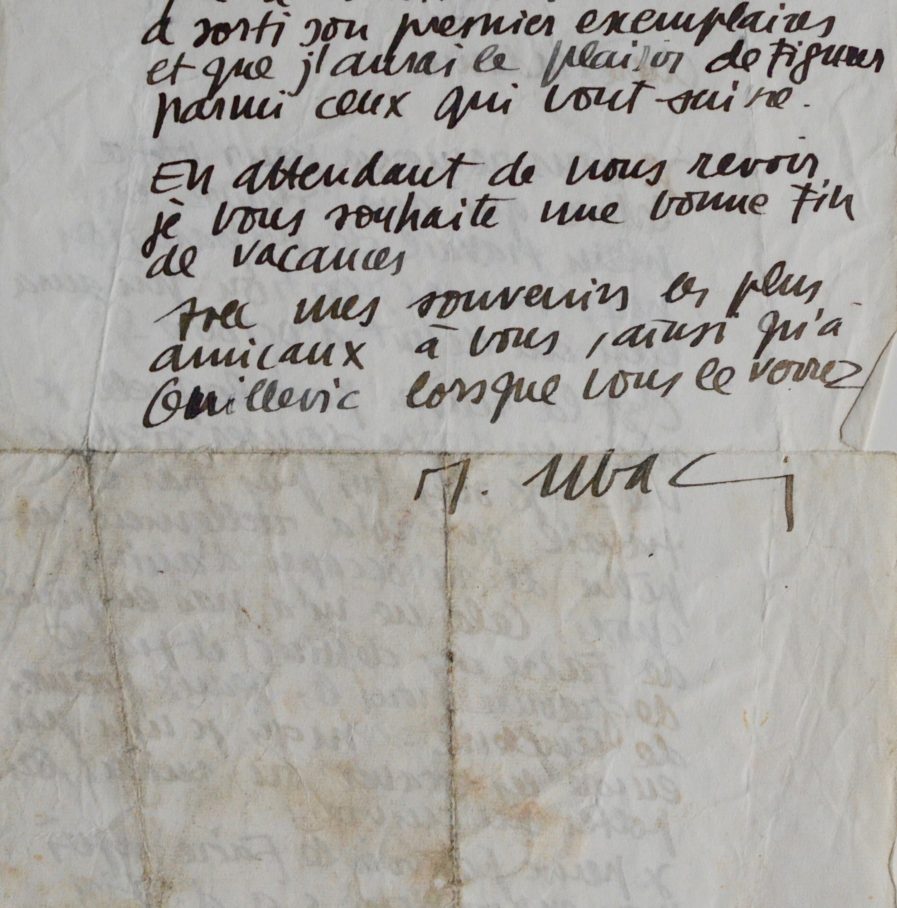 a sorti son premier exemplaires
et que j'aurai le plaisir de figurer
parmi ceux qui vont suivre.
En attendant de nous revoir
je vous souhaite une bonne fin
de vacances
avec mes souvenirs les plus
amicaux à vous, ainsi qu'à
Guillevic lorsque vous le verrez
R. Ubac